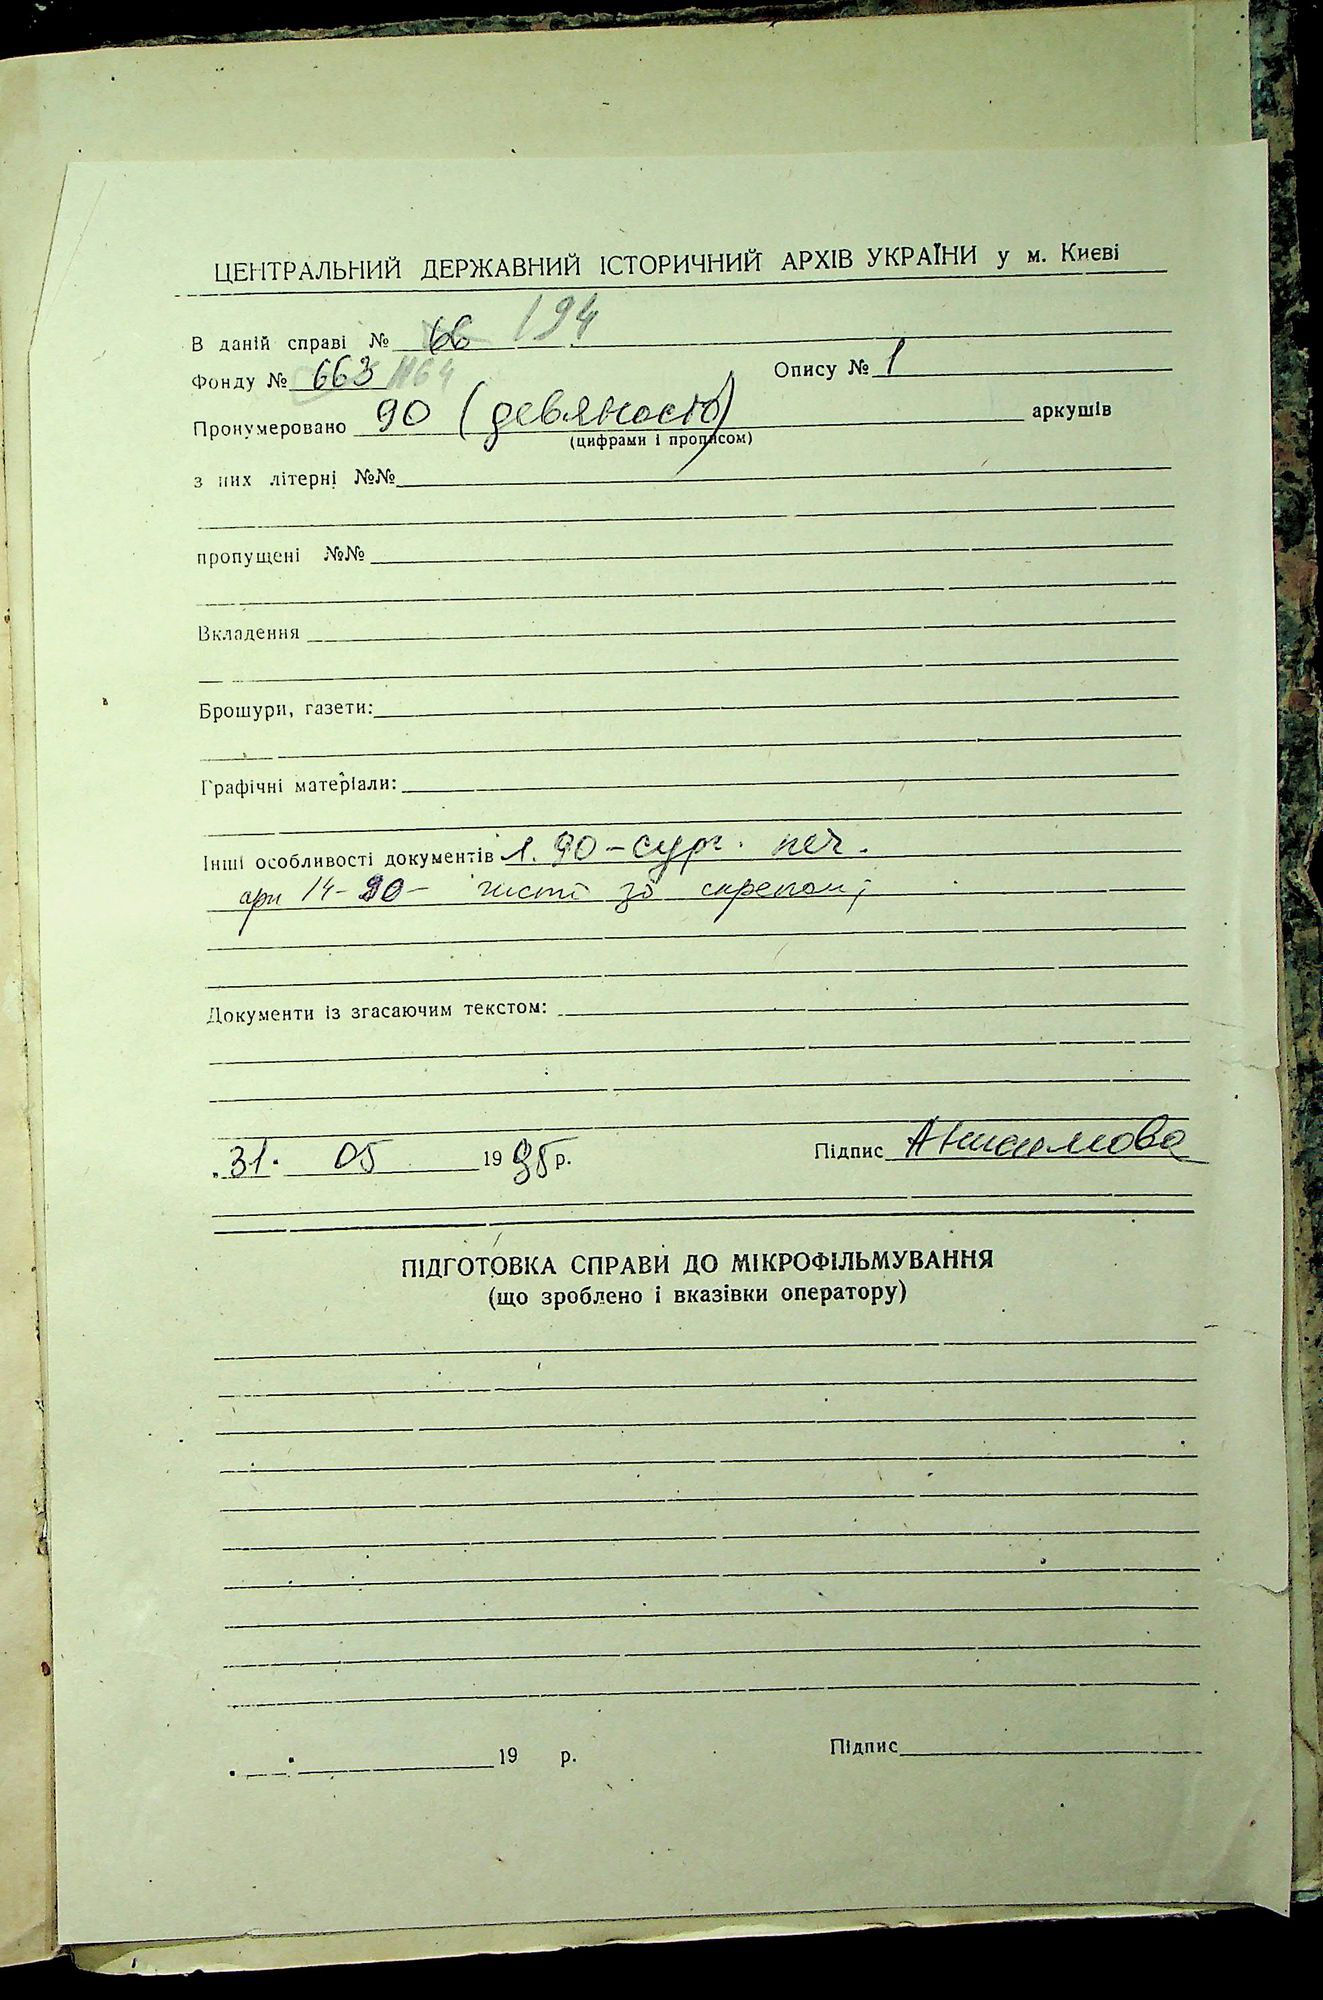 ЦЕНТРАЛЬНИЙ ДЕРЖАВНИЙ ІСТОРИЧНИЙ АРХІВ УКРАЇНИ у м. Києві
В даній справі № 66 194
Фонду № 663 1164 Опису № 1
Пронумеровано 90 (девяносто) аркушів
(цифрами і прописом)
з них літерні №№
пропущені №№
Вкладення
Брошури, газети:
Графічні матеріали:
Інші особливості документів л. 90 – сург. печ.
арк 14-90- чисті зі скрепою;
Документи із згасаючим текстом:
„31. 05 1995 р. Підпис Анисимова
ПІДГОТОВКА СПРАВИ ДО МІКРОФІЛЬМУВАННЯ
(що зроблено і вказівки оператору)
19 р. Підпис